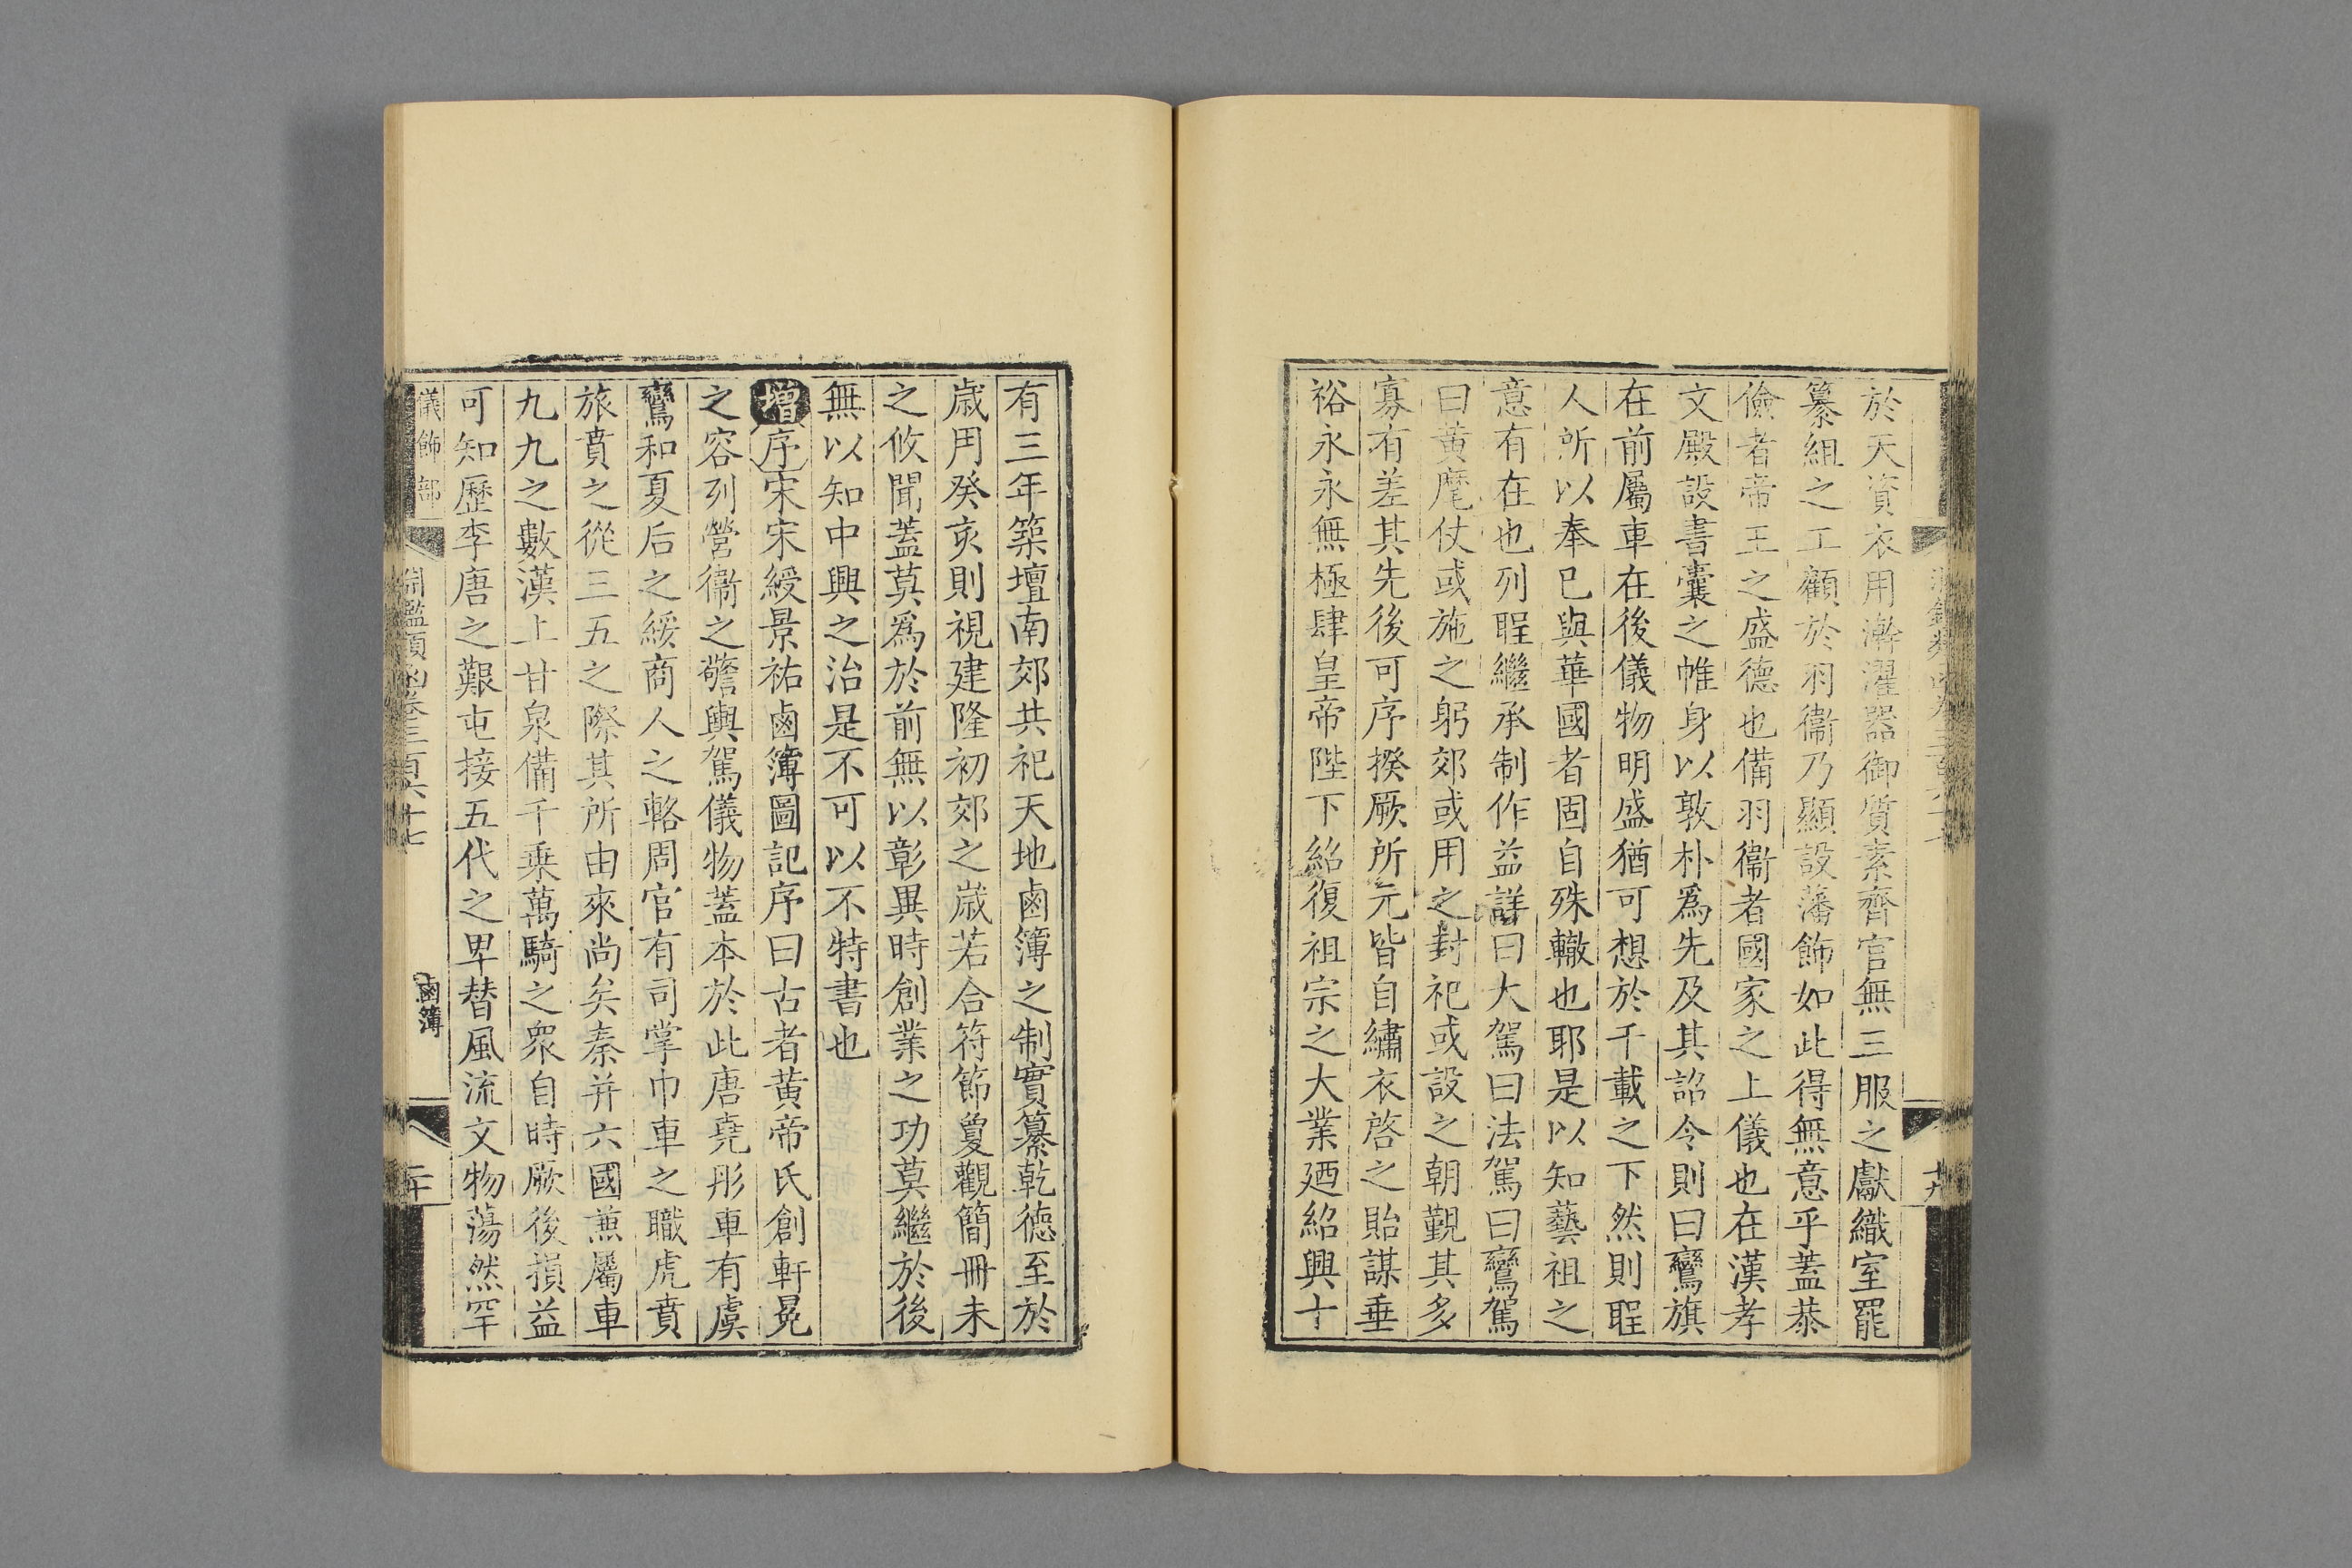 於天資衣用澣濯器御質素齊官無三服之獻織室罷
纂組之工顧於羽衞乃顯設藩飾如此得無意乎蓋恭
儉者帝王之盛德也備羽衞者國家之上儀也在漢孝
文殿設書囊之帷身以敦朴爲先及其詔令則曰鸞旗
在前屬車在後儀物明盛猶可想於千載之下然則聖
人所以奉巳與華國者固自殊轍也耶是以知藝祖之
意有在也列聖繼承制作益詳曰大駕曰法駕曰鸞駕
曰黃麾仗或施之躬郊或用之封祀或設之朝覲其多
寡有差其先後可序揆厥所元皆自繡衣啓之貽謀垂
裕永永無極肆皇帝陛下紹復祖宗之大業廼紹興十
有三年築壇南郊共祀天地鹵簿之制實纂乾德至於
歲月癸亥則視建隆初郊之歲若合符節夐觀簡冊未
之攸聞蓋莫爲於前無以彰異時創業之功莫繼於後
無以知中興之治是不可以不特書也
增序宋宋綬景祐鹵簿圖記序曰古者黃帝氏創軒冕
之容列營衞之警輿駕儀物蓋本於此唐堯彤車有虞
鸞和夏后之綏商人之輅周官有司掌巾車之職虎賁
旅賁之從三五之際其所由來尚矣秦并六國兼屬車
九九之數漢上甘泉備千乘萬騎之衆自時厥後損益
可知歷李唐之艱屯接五代之卑替風流文物蕩然罕
儀飾部 淵鑑類函卷三百六十七 鹵簿 二十